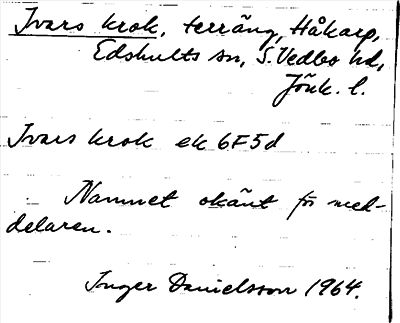 Ivars krok, terräng, Håkarp,
Edshults sn, S. Vedbo hd,
Jönk. l.
Ivars krok ek 6F5d
Namnet okänt för med-
delaren.
Inger Danielsson 1964.